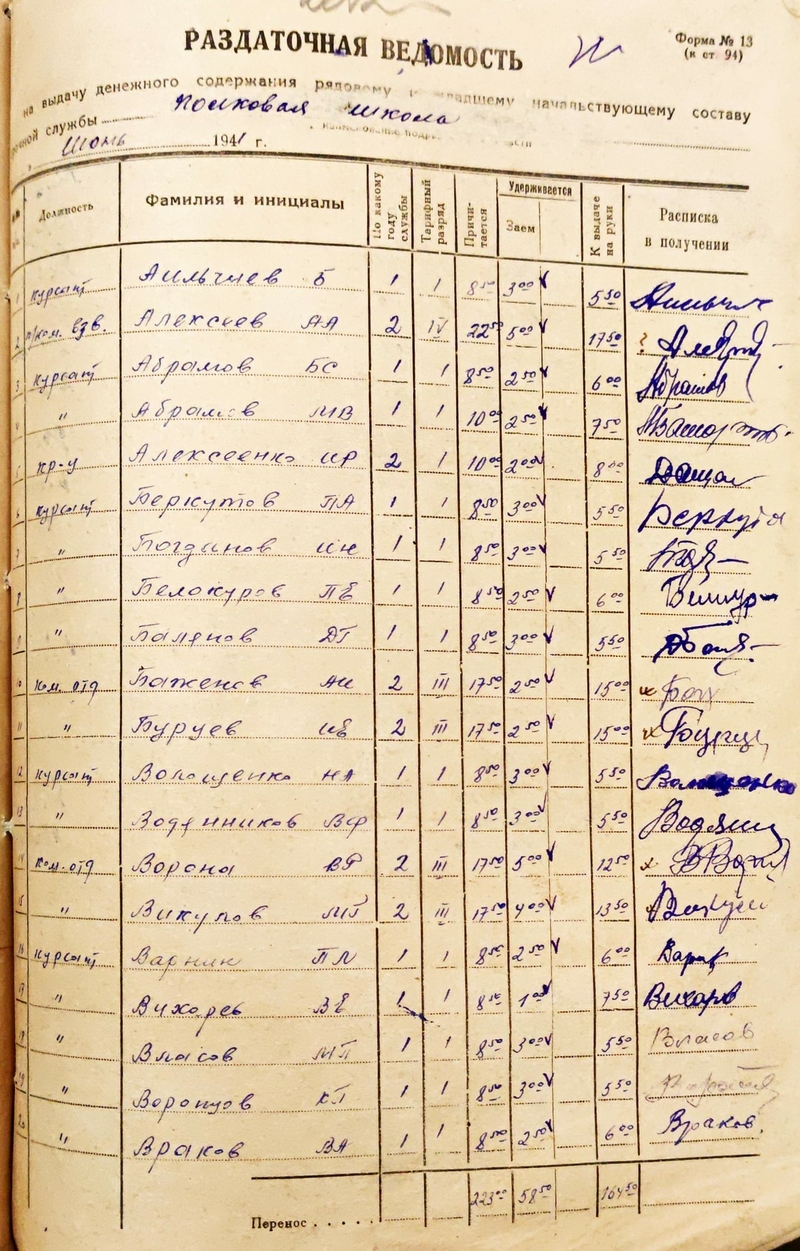 РАЗДАТОЧНАЯ ВЕДОМОСТЬ
Форма № 13
(к ст 94)
на выдачу денежного содержания рядовому и младшему начальствующему составу
службы Полковая школа
Июнь 1941 г.
Должность Фамилия и инициалы По какому году службы Тарифный разряд Причитается Удерживается Заем К выдаче на руки Расписка в получении
1 курсант Б 1 1 8 50 3 00 5 50
2 п/ком. взв. Алексеев АА 2 IV 22 50 5 00 17 50
3 курсант Абрамов БС 1 1 8 50 2 50 6 00 Абрамов
4 " Абрамов МВ 1 1 10 00 2 50 7 50
5 кр-ц Алексеенко ИР 2 1 10 00 2 00 8 00
6 курсант Беркутов ПА 1 1 8 50 3 00 5 50 Беркутов
7 " Богданов ИН 1 1 8 50 3 00 5 50
8 " Белокуров ПЕ 1 1 8 50 2 50 6 00
9 " Балянов ДГ 1 1 8 50 3 00 5 50
10 Ком. отд Баженов АИ 2 III 17 50 2 50 15 00
11 " Буруев ИЕ 2 III 17 50 2 50 15 00
12 курсант Волощенко НА 1 1 8 50 3 00 5 50
13 " Водянников ВФ 1 1 8 50 3 00 5 50
14 Ком. отд Ворона ВР 2 III 17 50 5 00 12 50
15 " Викулов МГ 2 III 17 50 4 00 13 50
16 курсант Варник ПЛ 1 1 8 50 2 50 6 00
17 " Вихорев ВЕ 1 1 8 50 1 00 7 50
18 " Власов МП 1 1 8 50 3 00 5 50 Власов
19 " Воронцов КП 1 1 8 50 3 00 5 50
20 " Враков ВА 1 1 8 50 2 50 6 00 Враков.
Перенос . . . . . 223 00 58 50 164 50